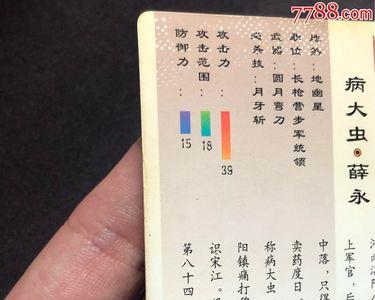 7788.com
病大虫·薛永
地幽星
职位:长枪营步军统领
武器:圆月弯刀
必杀技:月牙斩
攻击力:
39
攻击范围:
18
防御力:
15
上军官,后
中落,只得
卖药度日
称病大虫
阳镇痛打
识宋江。
第八十四